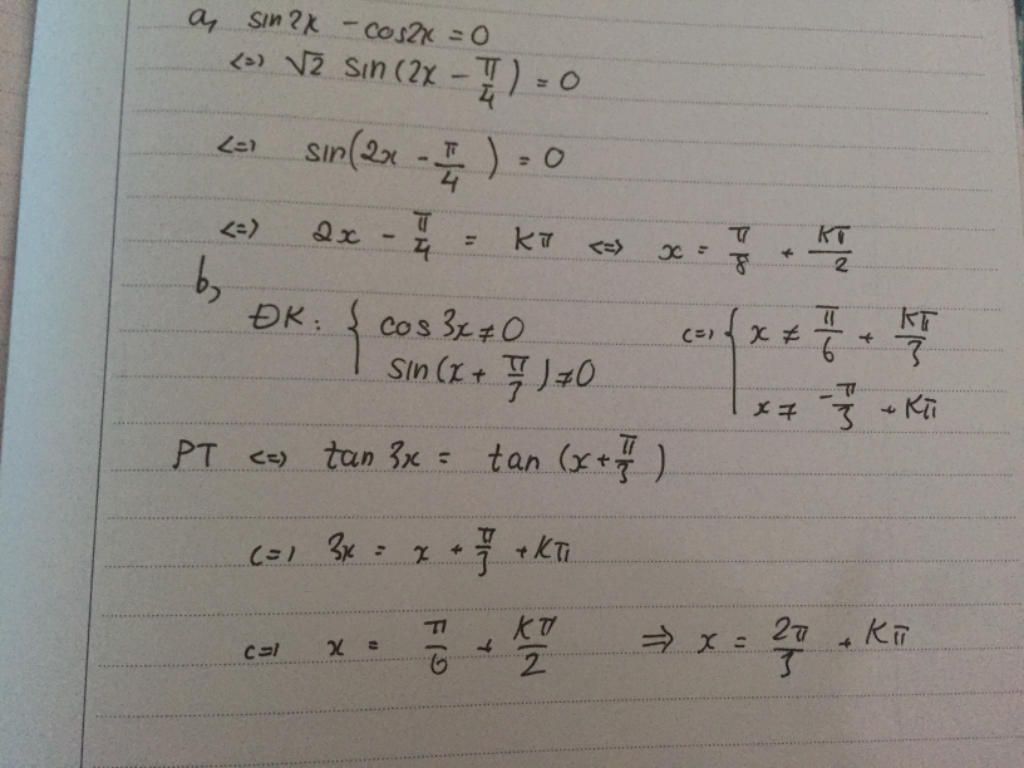 a, sin2x - cos2x = 0
<=> √2 sin(2x - π/4) = 0
<=> sin(2x - π/4) = 0
<=> 2x - π/4 = kπ <=> x = π/8 + kπ/2
b,
ĐK: { cos3x ≠ 0 <=> { x ≠ π/6 + kπ/3
sin(x + π/3) ≠ 0 x ≠ -π/3 + kπ
PT <=> tan 3x = tan (x + π/3)
<=> 3x = x + π/3 + kπ
<=> x = π/6 + kπ/2 => x = 2π/3 + kπ